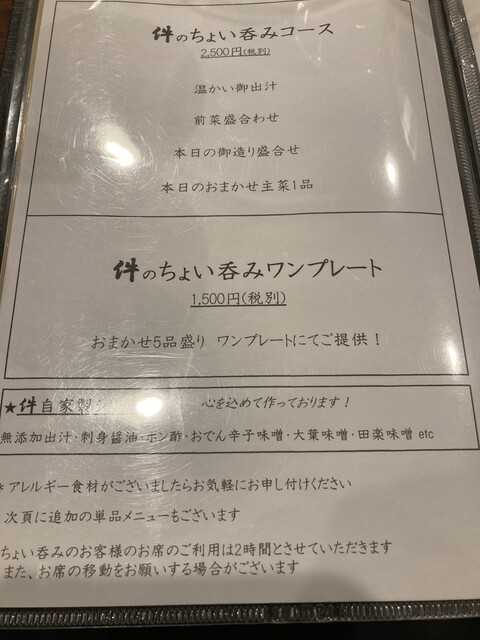 件のちょい呑みコース
2,500円(税別)
温かい御出汁
前菜盛合わせ
本日の御造り盛合せ
本日のおまかせ主菜1品
件のちょい呑みワンプレート
1,500円(税別)
おまかせ5品盛り ワンプレートにてご提供！
★件自家製 心を込めて作っております！
無添加出汁・刺身醤油・ポン酢・おでん辛子味噌・大葉味噌・田楽味噌 etc
*アレルギー食材がございましたらお気軽にお申し付けください
次頁に追加の単品メニューもございます
ちょい呑みのお客様のお席のご利用は2時間とさせていただきます
また、お席の移動をお願いする場合がございます